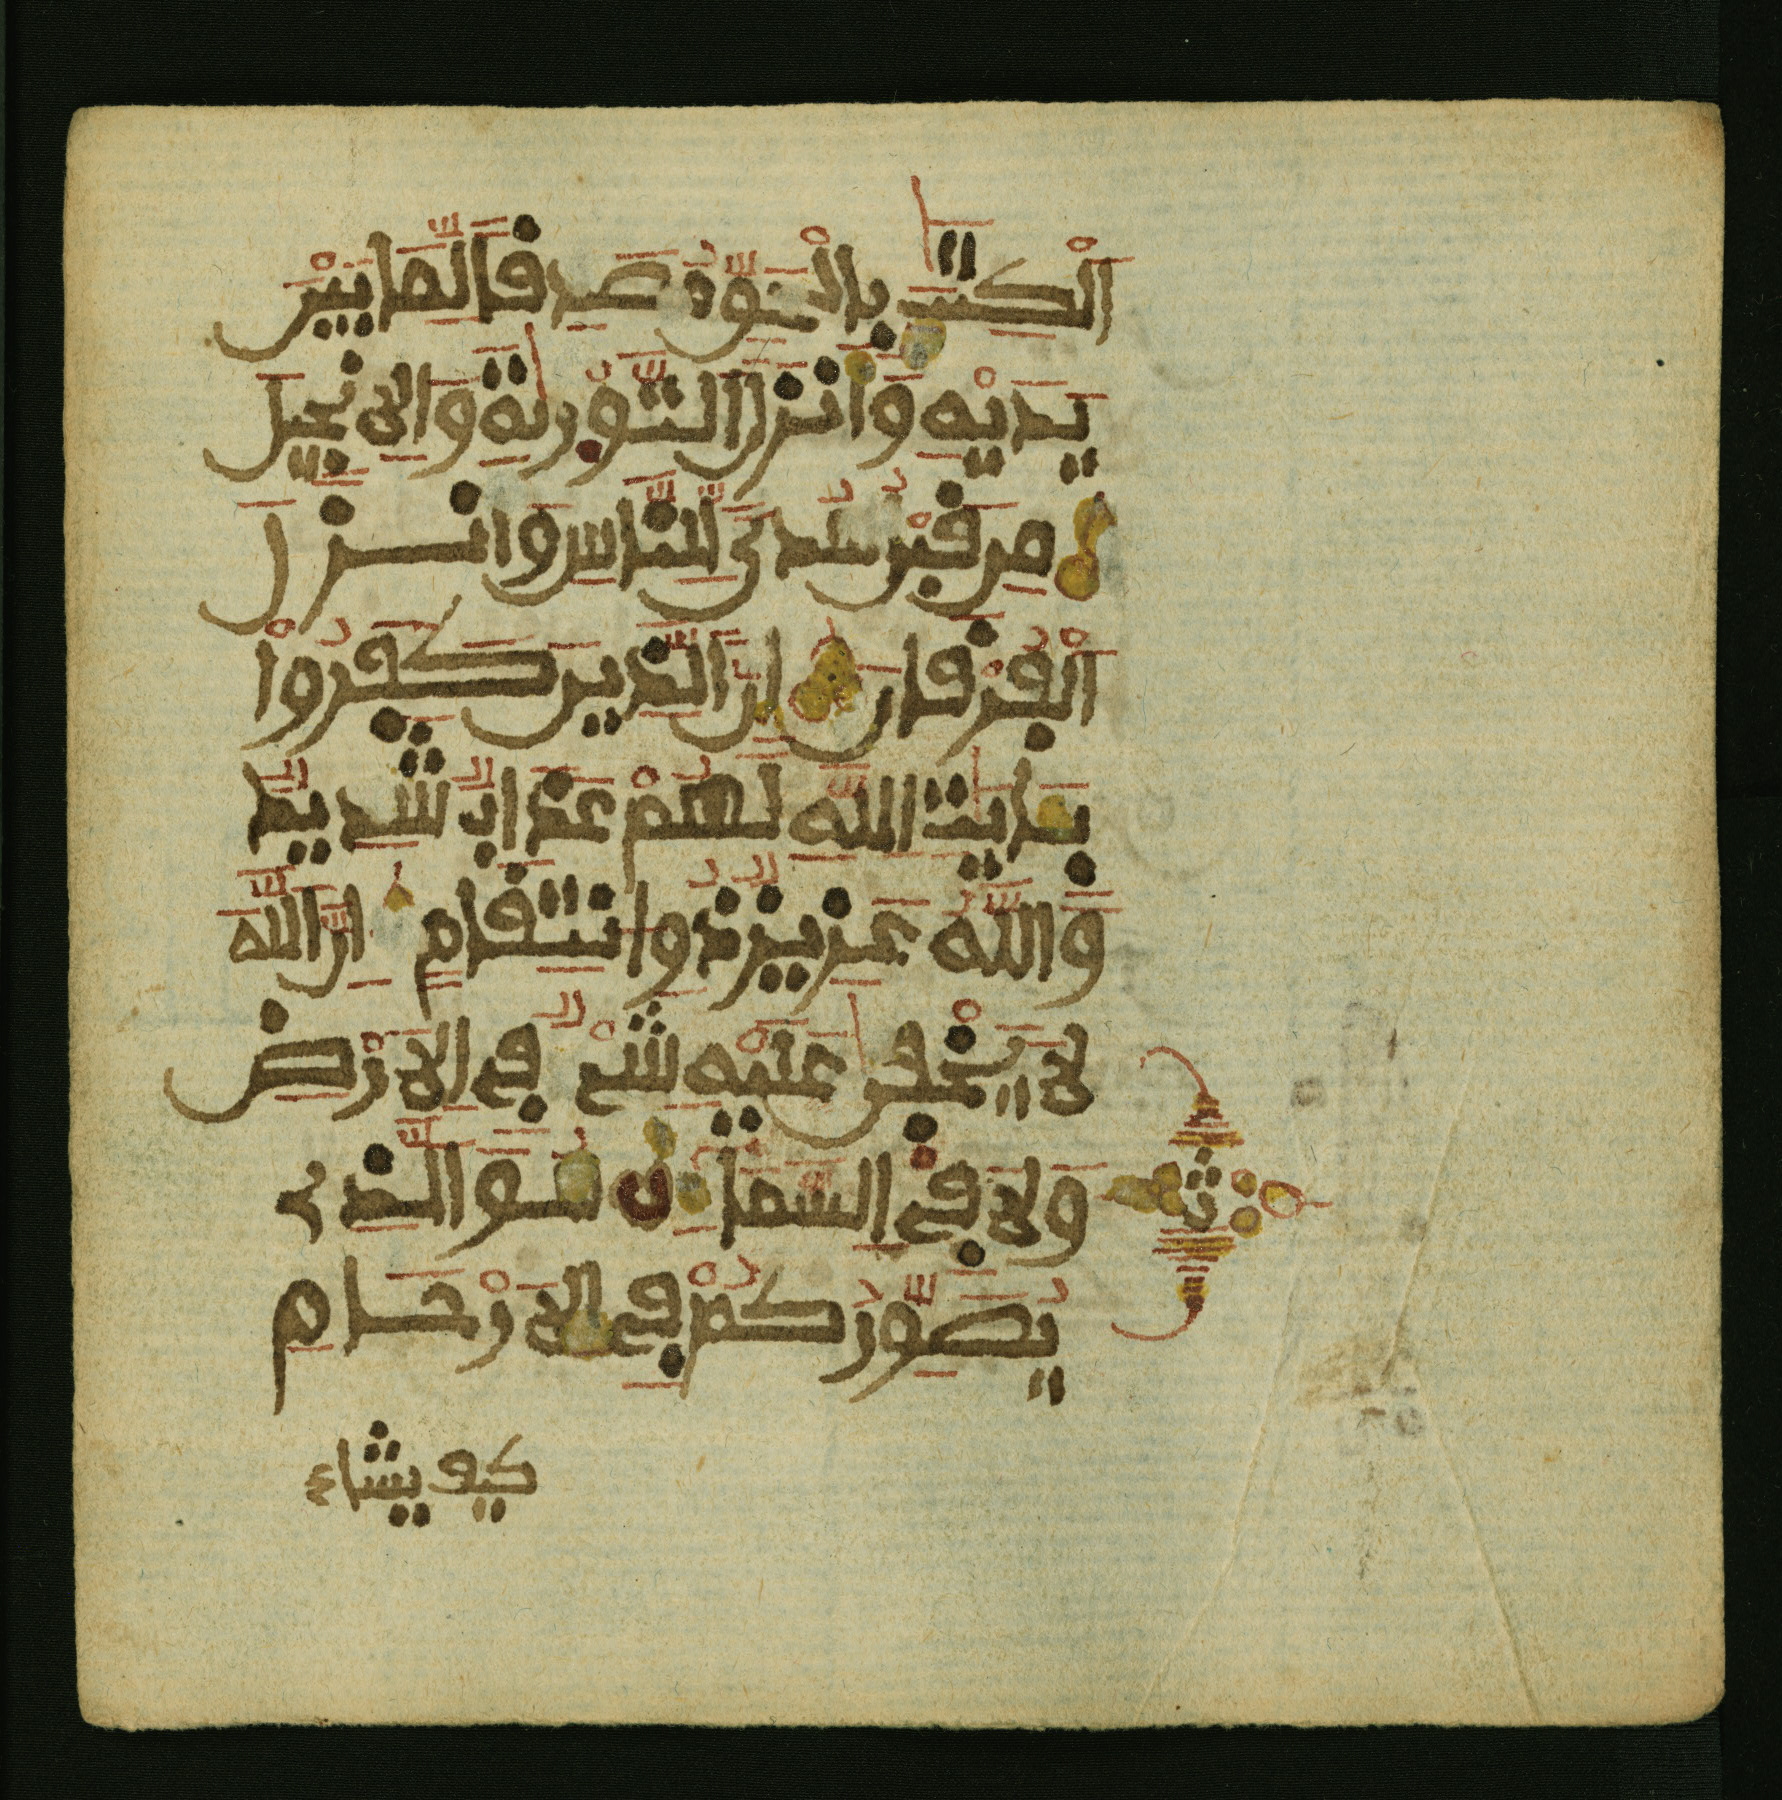 اَ۬لْكِتَٰبَ بِالْحَقِّ مُصَدِّقاٗ لِّمَا بَيْنَ
يَدَيْهِ وَأَنزَلَ اَ۬لتَّوْر۪يٰةَ وَالِانجِيلَ
مِن قَبْلُ هُدىٗ لِّلنَّاسِ وَأَنزَلَ
اَ۬لْفُرْقَانَ إِنَّ اَ۬لذِينَ كَفَرُواْ
بِـَٔايَٰتِ اِ۬للَّهِ لَهُمْ عَذَابٞ شَدِيدٞ
وَاللَّهُ عَزِيزٞ ذُو اُ۪نتِقَامٍ اِنَّ اَ۬للَّهَ
لَا يَخْفَىٰ عَلَيْهِ شَےْءٞ فِے اِ۬لَارْضِ
وَلَا فِے اِ۬لسَّمَآءِ هُوَ اَ۬لذِے
يُصَوِّرُكُمْ فِے اِ۬لَارْحَامِ
كيف يشاء